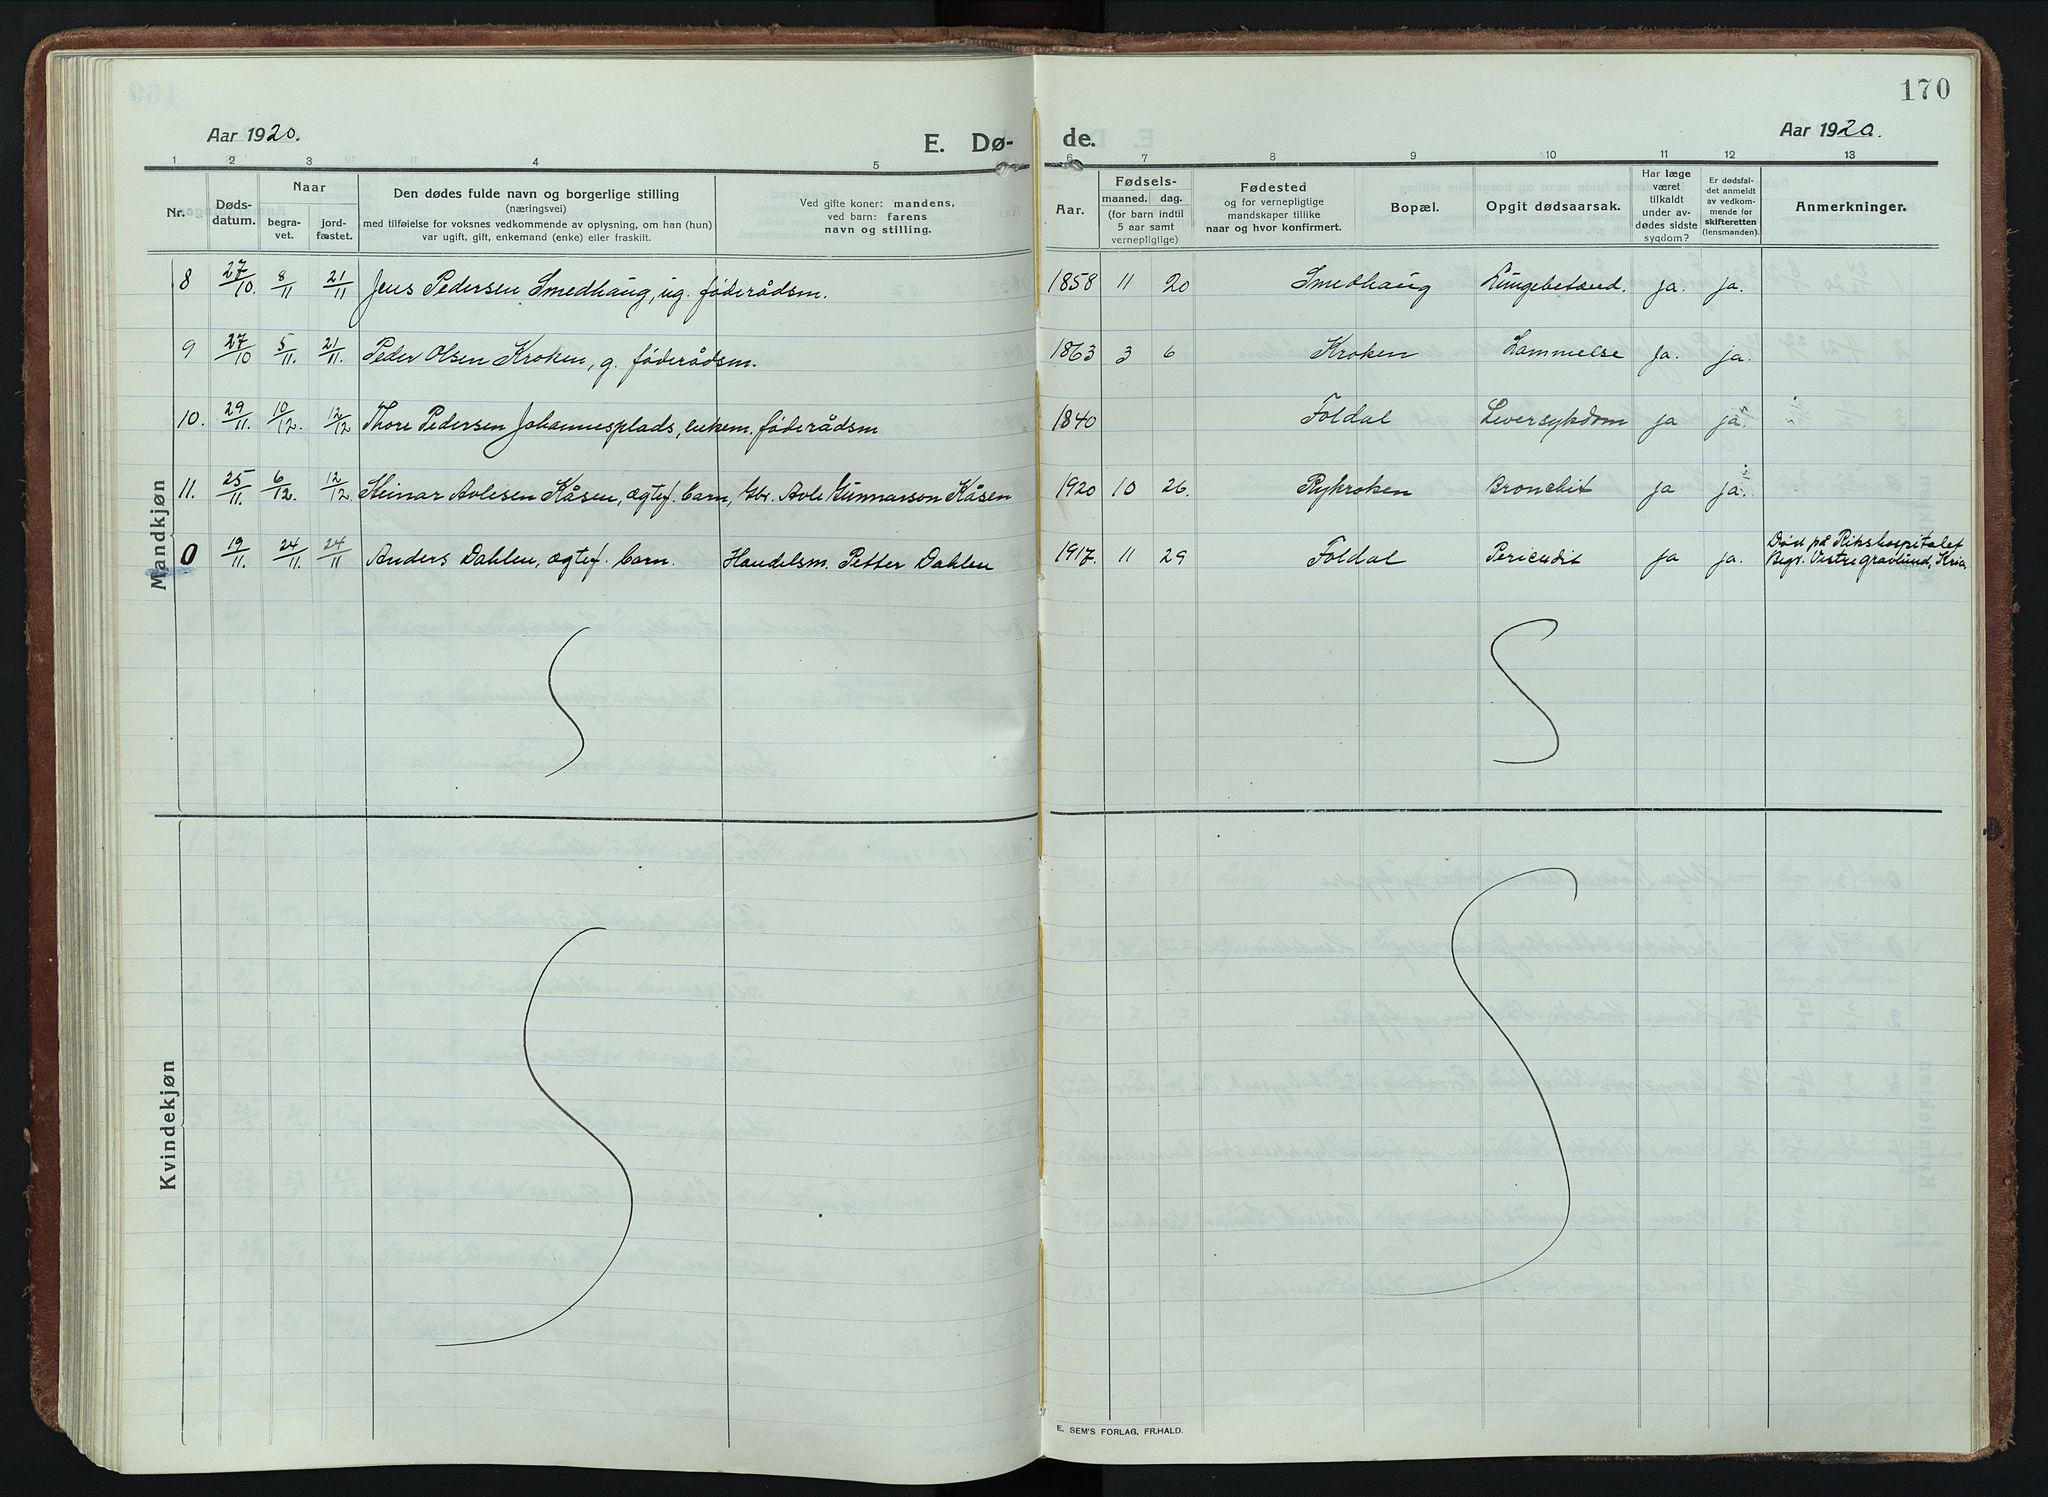 170
Aar 1920.
E. Dø-
de.
Aar 1920.
1 2 3 4 5 6 7 8 9 10 11 12 13
Nr.
Døds-
datum.
Naar
begra-
vet.
jord-
fæstet.
Den dødes fulde navn og borgerlige stilling
(næringsvei)
med tilføielse for voksnes vedkommende av oplysning, om han (hun)
var ugift, gift, enkemand (enke) eller fraskilt.
Ved gifte koner: mandens,
ved barn: farens
navn og stilling.
Aar.
Fødsels-
maaned. dag.
(for barn indtil
5 aar samt
vernepligtige)
Fødested
og for vernepligtige
mandskaper tillike
naar og hvor konfirmert.
Bopæl.
Opgit dødsaarsak.
Har læge
været
tilkaldt
under av-
dødes sidste
sygdom?
Er dødsfal-
det anmeldt
av vedkom-
mende for
skifteretten
(lensmanden).
Anmerkninger.
Mandkjøn
8 27/10. 8/11 21/11 Jens Pedersen Smedhaug, ug. føderådsm. 1858 11 20 Smedhaug Lungebetænd. ja. ja.
9 27/10 5/11. 21/11. Peder Olsen Kroken, g. føderådsm. 1863 3 6 Kroken Lammelse ja. ja.
10. 29/11. 10/12. 12/12 Thore Pedersen Johannesplads, enkem. føderådsm 1840 Foldal Leversykdom ja ja.
11. 25/11. 6/12. 12/12 Steinar Avlesen Kåsen, ægtef. barn, Gbr. Avle Gunnarson Kåsen 1920 10 26. Rykroken Bronchit ja ja.
0 19/11. 24/11. 24/11 Anders Dahlen, ægtef. barn. Handelsm. Petter Dahlen 1917. 11 29 Foldal ja ja. Død på Rikshospitalet
Begr. Vestre gravlund, Kria.
Kvindekjøn
E. SEM'S FORLAG, FR.HALD.